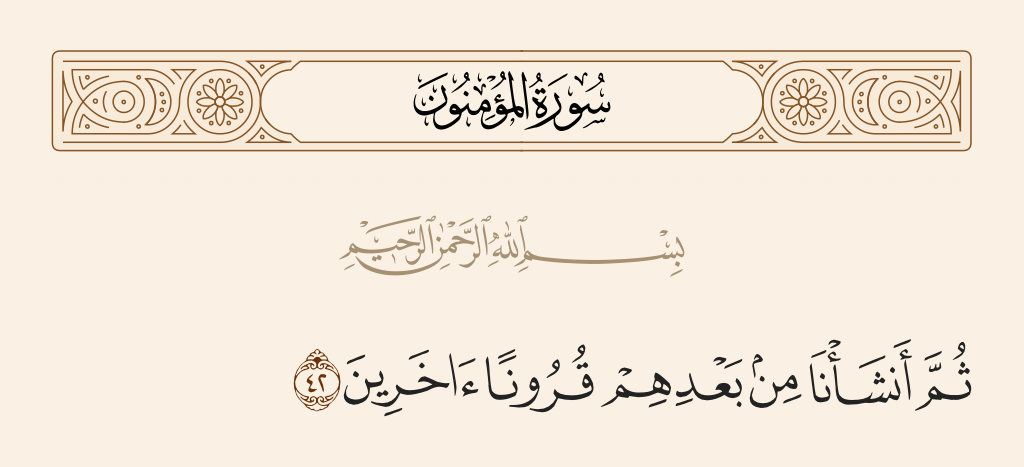 سُورَةُ المُؤْمِنُونَ
بِسْمِ ٱللَّهِ ٱلرَّحْمَٰنِ ٱلرَّحِيمِ
ثُمَّ أَنشَأْنَا مِنۢ بَعْدِهِمْ قُرُونًا ءَاخَرِينَ ٤٢